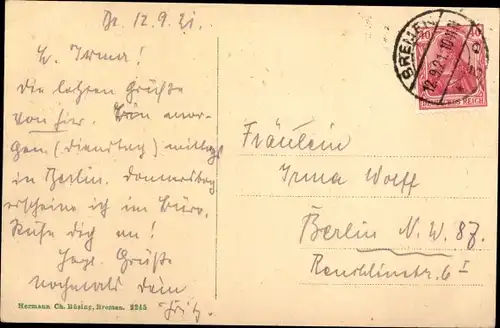 Br. 12.9.21.
L. Irma!
Die letzten Grüße
von hier. Bin mor-
gen (Dienstag) mittag
in Berlin. Donnerstag
erscheine ich im Büro.
Rufe dich an!
Herzl. Grüße
nochmals dein
Fritz.
Hermann Ch. Büsing, Bremen. 2245
BREMEN
12.9.21. 10
40 40
DEUTSCHES REICH
Fräulein
Irma Wolff
Berlin N.W. 87.
Reuchlinstr. 6 I